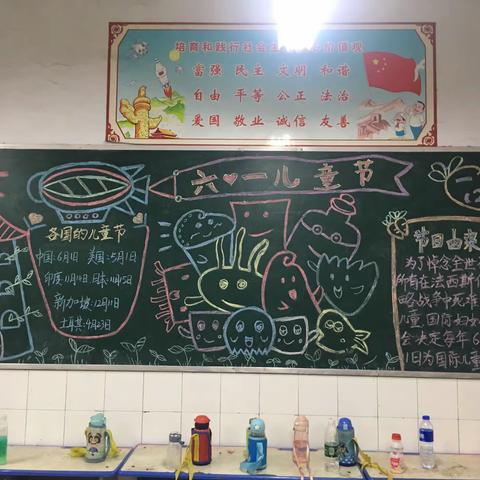 培育和践行社会主 价值观
富强 民主 文明 和谐
自由 平等 公正 法治
爱国 敬业 诚信 友善
六一儿童节
各国的儿童节
中国:6月1日 美国:5月1日
印度:11月14日 日本:
新加坡:
土耳其:4月23日
节日由来
为了悼念全世
所有在法西斯
略战争中死难
儿童,国际妇
会决定每年6
1日为国际儿